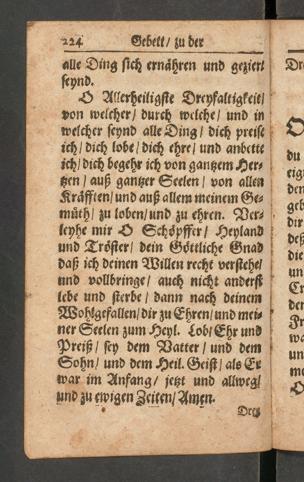 224 Gebett/ zu der
alle Ding sich ernähren und geziert
seynd.
O Allerheiligste Dreyfaltigkeit/
von welcher/ durch welche/ und in
welcher seynd alle Ding/ dich preise
ich/ dich lobe/ dich ehre/ und anbette
ich/ dich begehr ich von gantzem Her-
tzen/ auß gantzer Seelen/ von allen
Kräfften/ und auß allem meinem Ge-
müth/ zu loben/ und zu ehren. Ver-
leyhe mir O Schöpffer/ Heyland
und Tröster/ dein Göttliche Gnad
daß ich deinen Willen recht verstehe/
und vollbringe/ auch nicht anderst
lebe und sterbe/ dann nach deinem
Wohlgefallen/ dir zu Ehren/ und mei-
ner Seelen zum Heyl. Lob/ Ehr und
Preiß/ sey dem Vatter/ und dem
Sohn/ und dem Heil. Geist/ als Er
war im Anfang/ jetzt und allweg/
und zu ewigen Zeiten/ Amen.